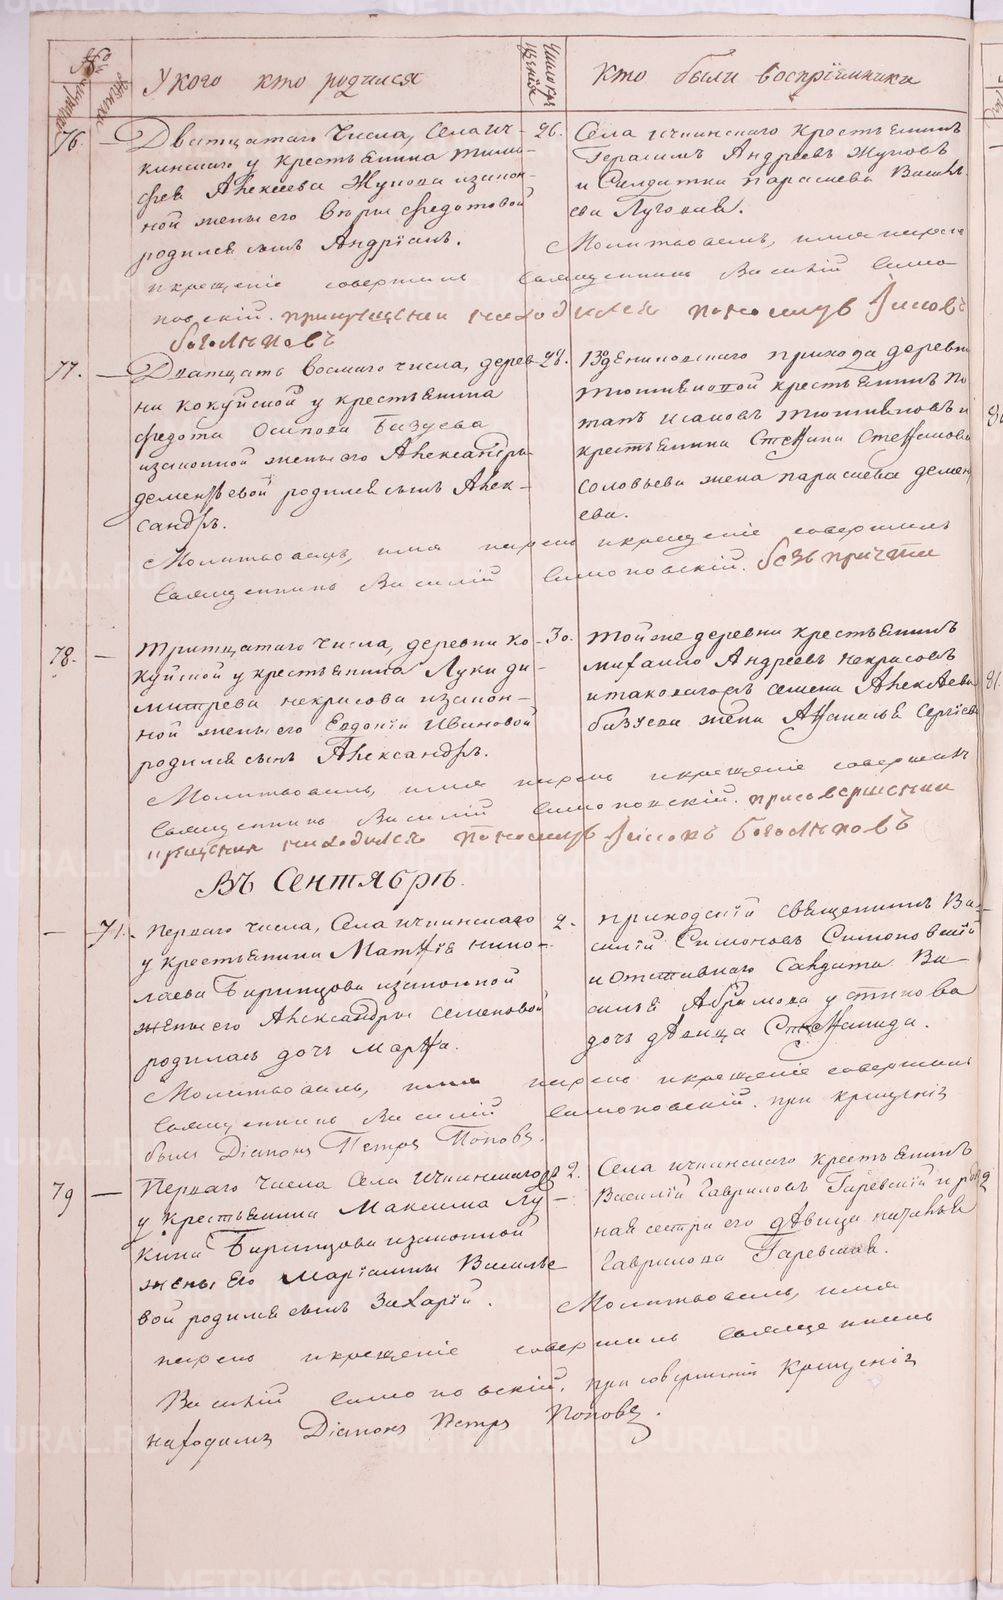 №
У кого кто родился
Число крещенiя
Кто были воспрiемники
76.
Дватцатаго числа, Села Ич-
кинскаго у крестьянина Тимо-
фея Алексеева Жукова изакон-
ной жены его Веры Федотовой
родился сынъ Андрiанъ.
26.
Села Ичкинскаго крестьянинъ
Герасимъ Андреевъ Жуковъ
и Солдатка Параскева Василь
ева
Молитвовалъ, имя нарекъ
и крещенiе совершилъ Священникъ Василiй Симо
новскiй. при крещенiи находился пономарь
Боголеповъ
77. —
Дватцать восмаго числа, дерев
ни Кокуйской у крестьянина
Федота Осипова Базуева
изаконной жены его Александры
Дементьевой родился сынъ Алек-
сандръ.
28.
прихода деревни
крестьянинъ По
тапъ Исаковъ и
крестьянина Стефана Стефанова
Соловьева жена Параскева Демен
ева.
Молитвовалъ, имя нарекъ и крещенiе совершилъ
Священникъ Василiй Симоновскiй. безъ причта
78. —
Тритцатаго числа, деревни Ко-
куйской у крестьянина Луки Ди-
митрева Некрасова изакон-
ной жены его Евдокiи Ивановой
родился сынъ Александръ.
30.
Тойже деревни крестьянинъ
Михайло Андреевъ Некрасовъ
и таковагожъ Семена Алексеева
Базуева жена Афанасья Сергiева
Молитвовалъ, имя нарекъ и крещенiе совершилъ
Священникъ Василiй Симоновскiй. при совершении
крещения находился пономарь Боголеповъ
Въ Сентябрѣ.
— 71.
Перваго числа, Села Ичкинскаго
у крестьянина Матфѣя Нико-
лаева Баринцова изаконной
жены его Александры Семеновой
родилась дочь Марфа.
2.
Приходскiй священникъ Ва-
силiй Симоновъ Симоновскiй
и отставнаго Салдата Ва-
силья Абрамова Устинова
дочь дѣвица Стефанида.
Молитвовалъ, имя нарекъ и крещенiе совершилъ
Священникъ Василiй Симоновскiй. при крещенiи
былъ Дiаконъ Петръ Поповъ.
79 —
Перваго числа Села Ичкинскаго
у крестьянина Максима Лу-
кина Баринцова изаконной
жены его Марiамны Василье
вой родился сынъ Захарiй.
2.
Села Ичкинскаго крестьянинъ
Василiй Гавриловъ Гаревскiй и род
ная сестра его дѣвица Наталья
Гаврилова Гаревская.
Молитвовалъ, имя
нарекъ и крещенiе совершилъ Священникъ
Василiй Симоновскiй, при совершенiи Крещенiя
находился Дiаконъ Петръ Поповъ.
METRIKI.GASO-URAL.RU